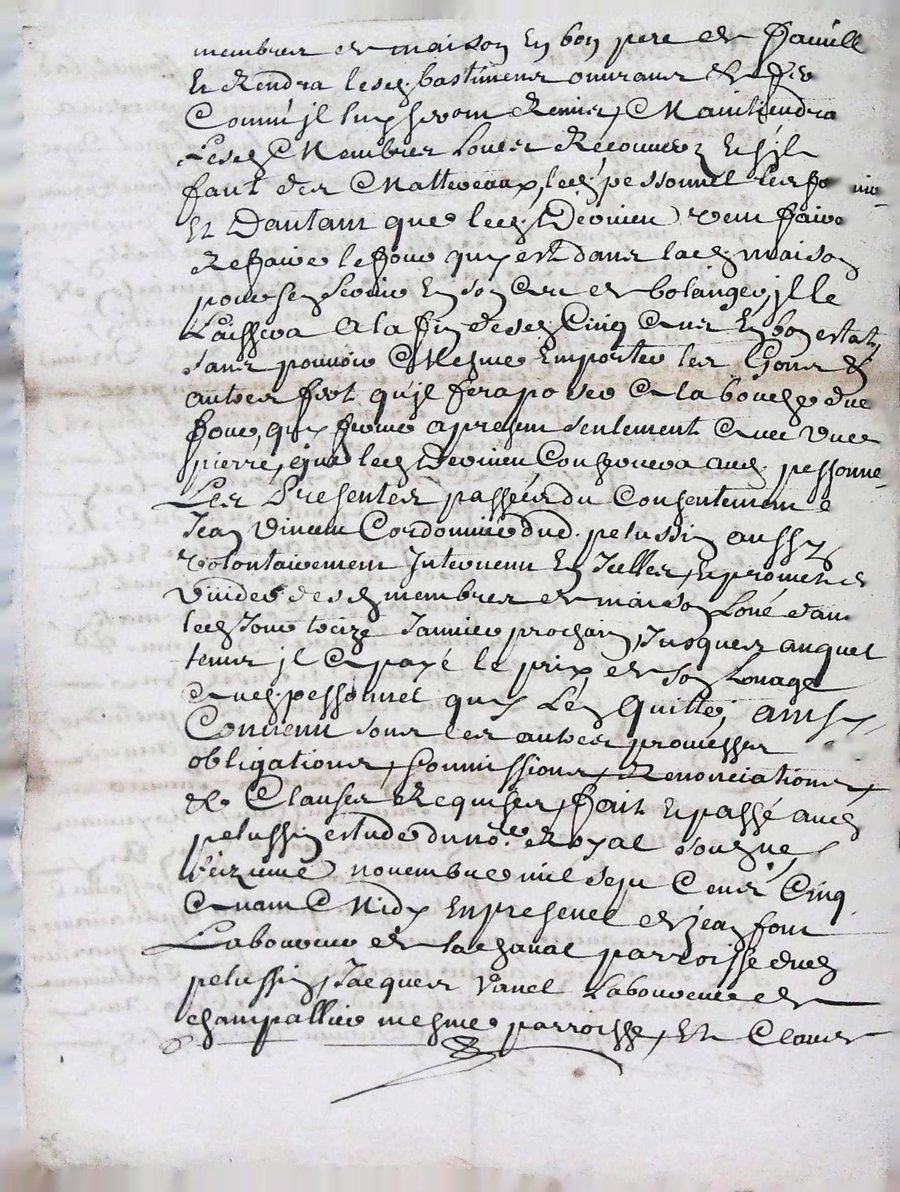 membres et maison en bon pere de famille
Et Rendra lesd. bastimens ouvrans &
Comme jl luy seront Remis, Maintiendra
Lesd. Membres Loues Recouvers Et s'il
faut des Matteraux, led. pessonnel les
Et Dautant que led. Devinieu veut faire
Refaire le four quy est dans lad. maison
pour sen servir En son art de bolanger, jl le
Laissera A la fin desd. Cinq Ans En bon estat
sans pouvoir Mesme Emporter les Gons &
autres qu'jl fera poser A la bouche du
four, quy ferme apresent seulement Avec Une
pierre, que led. Devinieu Conservera aud. pessonne
Les Presentes passées du Consentement de
Jean Vincent Cordonnier dud. pelussin aussy
volontairement Intervenu En Jcelles, Et promet de
Vuider desd. membres et maison Loué dans
led. Jour treize Janvier prochain, Jusques auquel
temps jl A payé le prix de son Louage
Aud. pessonnel quy Len Quitte; ainsy
Convenu sous les autres promesses
obligations, soumissions, Renonciations,
& Clauses Requises, fait Et passé aud.
pelussin estude du no.re Royal sousigné,
novembre mil sept Cens Cinq
Avant Midy En presence de jean four
Laboureur de lachanal parroisse dud.
pelussin, Jacques Vanel Laboureur de
champallier mesme parroisse, Et Claude